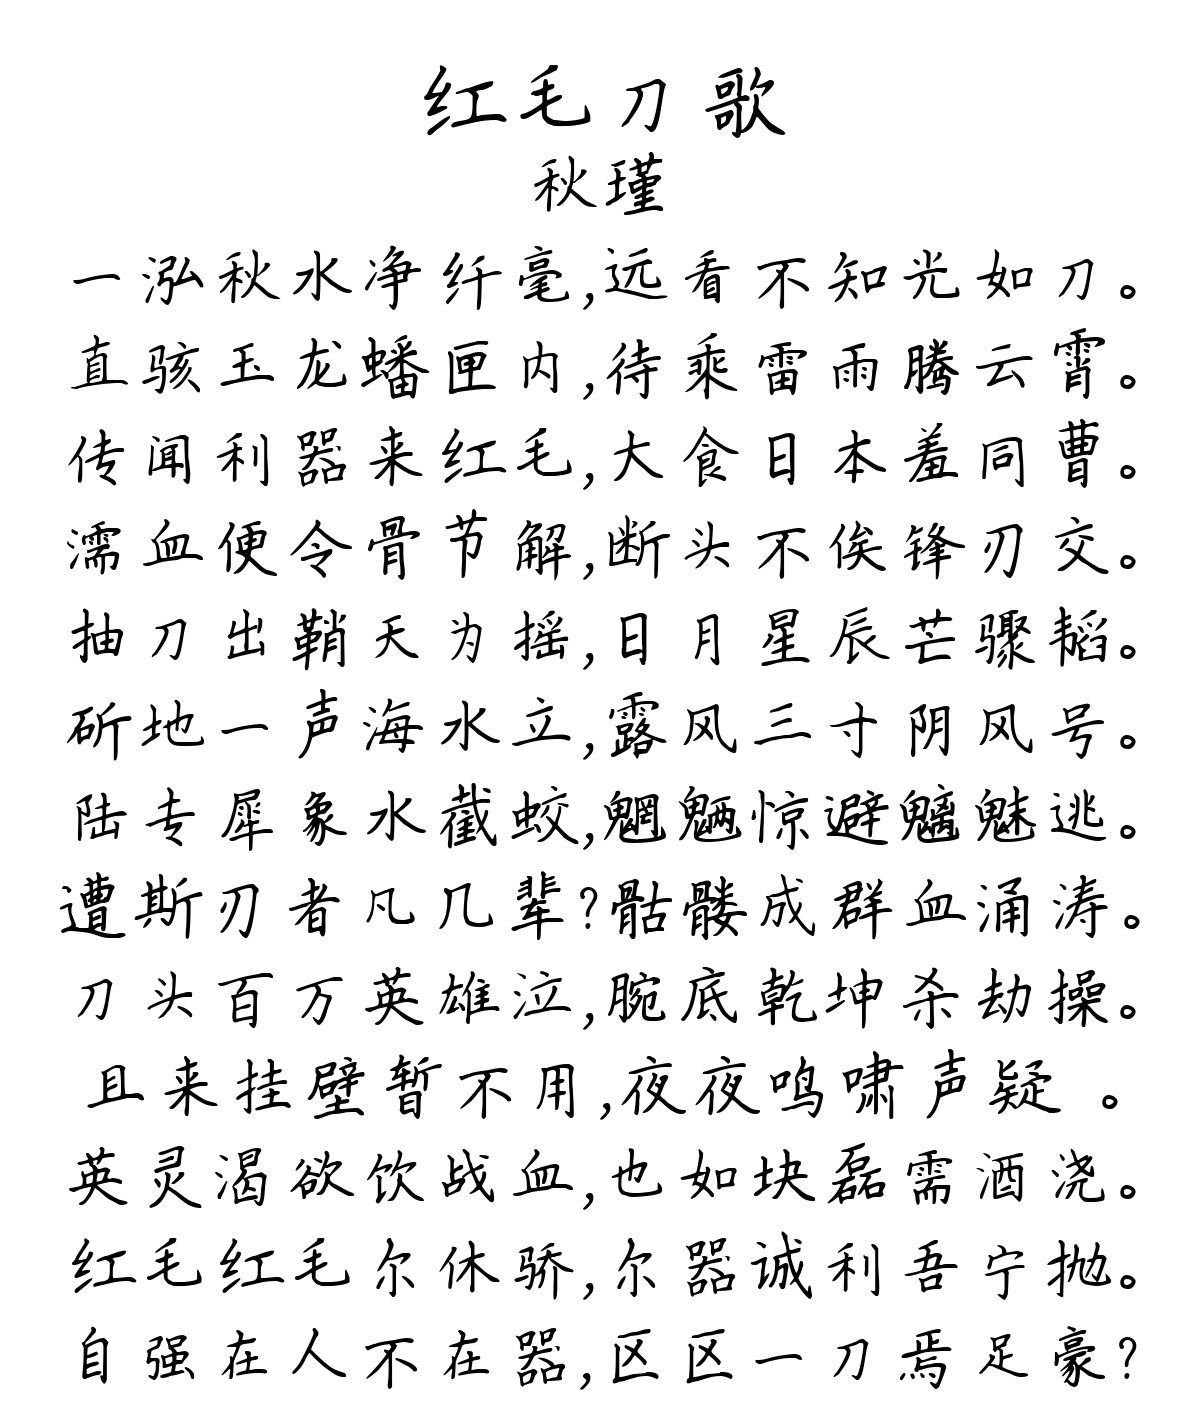 红毛刀歌
秋瑾
一泓秋水净纤毫,远看不知光如刀。
直骇玉龙蟠匣内,待乘雷雨腾云霄。
传闻利器来红毛,大食日本羞同曹。
濡血便令骨节解,断头不俟锋刃交。
抽刀出鞘天为摇,日月星辰芒骤韬。
斫地一声海水立,露风三寸阴风号。
陆专犀象水截蛟,魍魉惊避魑魅逃。
遭斯刃者凡几辈?骷髅成群血涌涛。
刀头百万英雄泣,腕底乾坤杀劫操。
且来挂壁暂不用,夜夜鸣啸声疑。
英灵渴欲饮战血,也如块磊需酒浇。
红毛红毛尔休骄,尔器诚利吾宁抛。
自强在人不在器,区区一刀焉足豪?